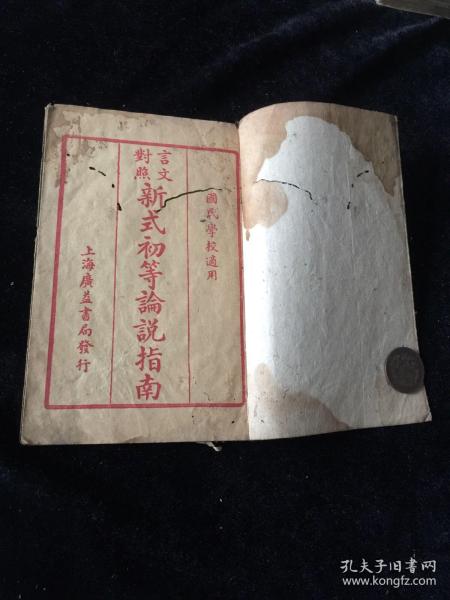 國民學校適用
言文對照
新式初等論説指南
上海廣益書局發行
孔夫子旧书网
www.kongfz.com